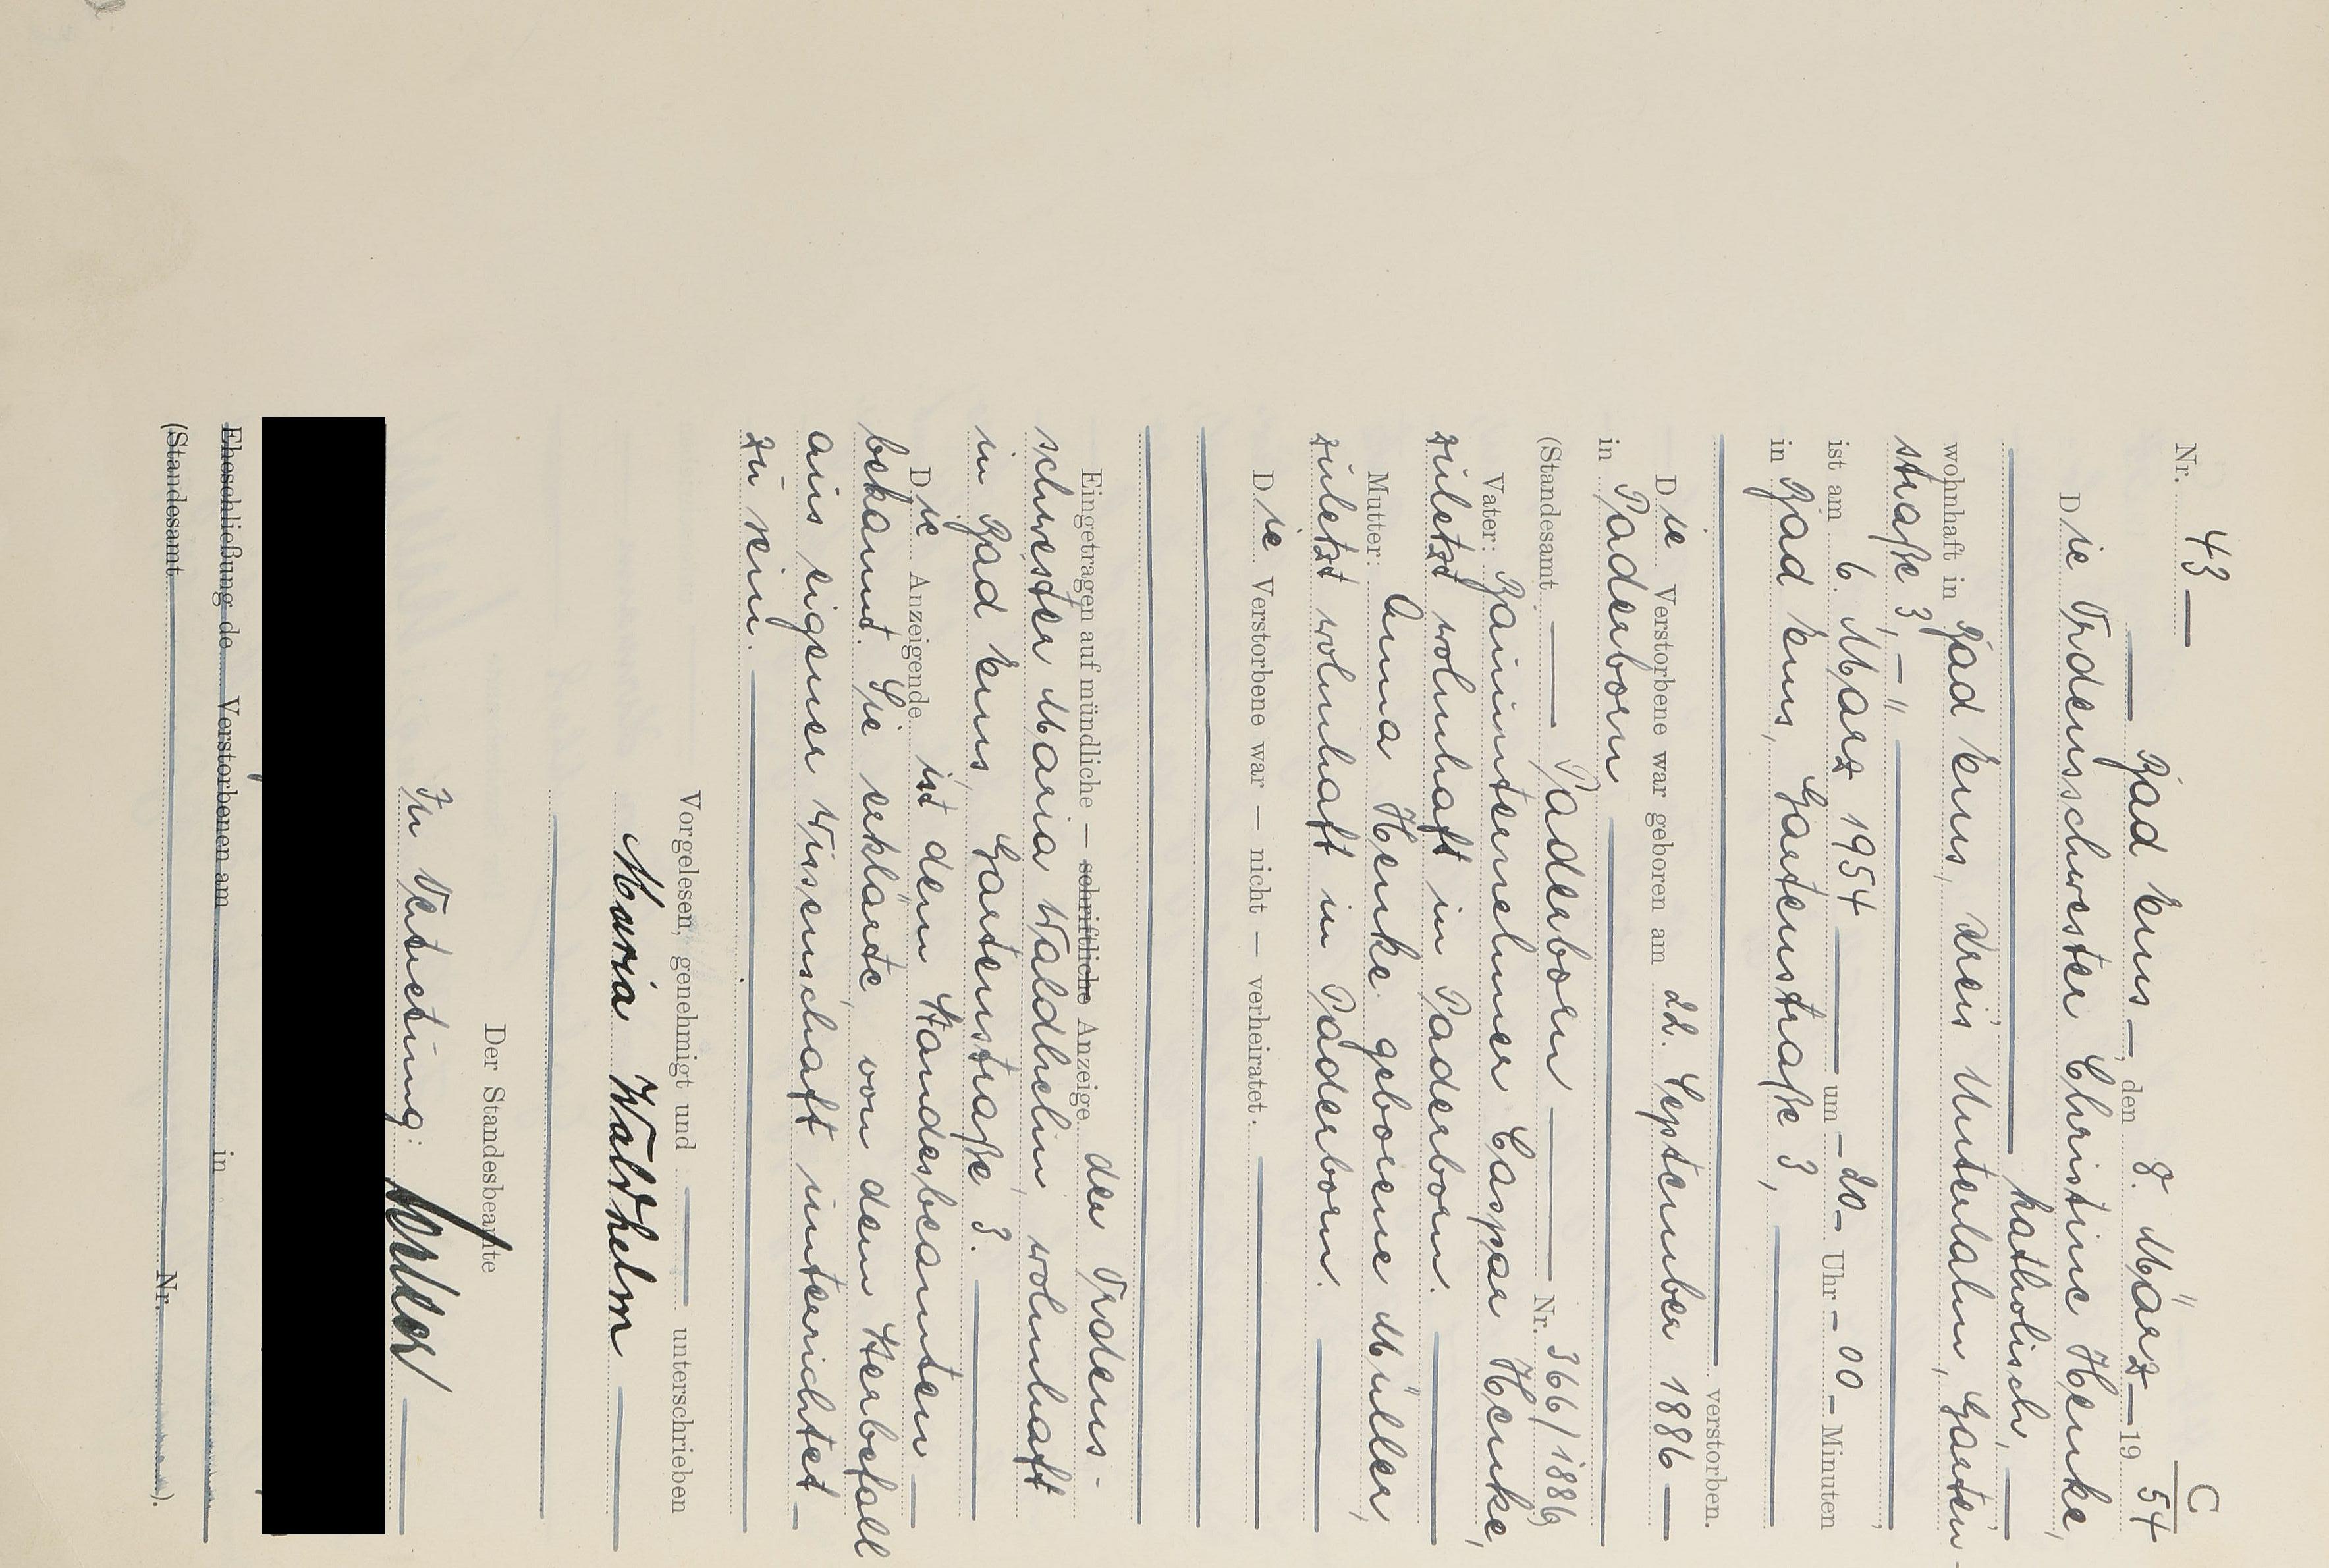 C
Nr. 43
Bad Ems, den 8. März 1954
Die Ordensschwester Christine Henke,
katholisch,
wohnhaft in Bad Ems, Kreis Unterlahn, Garten-
straße 3, -"
ist am 6. März 1954 um - 20 - Uhr - 00 - Minuten
in Bad Ems, Gartenstraße 3,
verstorben.
Die Verstorbene war geboren am 22. September 1886
in Paderborn
(Standesamt Paderborn Nr. 366/1886)
Vater: Bauunternehmer Caspar Henke,
zuletzt wohnhaft in Paderborn.
Mutter: Anna Henke geborene Müller,
zuletzt wohnhaft in Paderborn.
Die Verstorbene war — nicht — verheiratet.
Eingetragen auf mündliche — schriftliche Anzeige der Ordens-
schwester Maria Waldhelm, wohnhaft
in Bad Ems, Gartenstraße 3.
Die Anzeigende ist dem Standesbeamten
bekannt. Sie erklärte, von dem Sterbefall
aus eigener Wissenschaft unterrichtet
zu sein.
Vorgelesen, genehmigt und unterschrieben
Maria Waldhelm
Der Standesbeamte
In Vertretung:
Eheschließung de Verstorbenen am in
(Standesamt Nr. ).